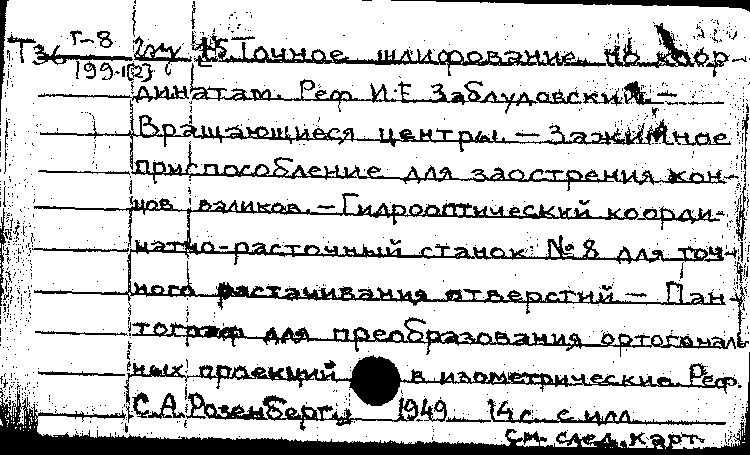 Т36 Г-8 15. Точное шлифование по коор-
199-1(2)
динатам. Реф. И.Е. Заблудовский. —
Вращающиеся центры. — Зажимное
приспособление для заострения кон-
цов валиков. — Гидрооптический коорди-
натно-расточный станок № 8 для точ-
ного растачивания отверстий — Пан-
тограф для преобразования ортогональ
ных проекций в изометрические. Реф.
С.А. Розенберг. 1949 14 с. с илл.
см. след. карт.